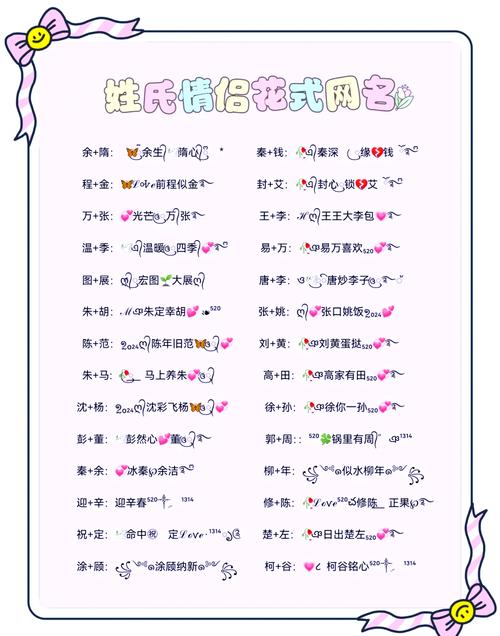 姓氏情侣花式网名
余+隋: 🦋余生 隋心 *
秦+钱: 🥀秦深 缘💔钱
程+金: 🦋Love前程似金
封+艾: 🥀封心 锁💔艾
万+张: 💕光芒 万 张
王+李: ℋ 王王大李包💗
温+季: 温暖 四季💕
易+万: 🥀易万喜欢520💕
图+展: 宏图🌱大展
唐+李: 唐炒李子
朱+胡: ℳ 朱定幸胡💕 520
张+姚: 张口姚饭2024💕
陈+范: 2024 陈年旧范🦋 💕
刘+黄: 🥀刘黄蛋挞520💕
朱+马: 🥀 马上养朱💕
高+田: 🥀高家有田520💕
沈+杨: 2024 沈彩飞杨🦋
徐+孙: 🥀徐你一孙520💕
彭+董: 彭然心💕董
郭+周:: 520🍀锅里有周 1314
秦+余: 💕冰秦 余洁
柳+年: 似水柳年
迎+辛: 迎辛春520 1314
修+陈: 🥀Love520 修陈_ 正果
祝+定: 命中㊗ 定Love·1314
楚+左: 🥀日出楚左520💕
涂+顾: 涂顾纳新
柯+谷: 💗 柯谷铭心520💕